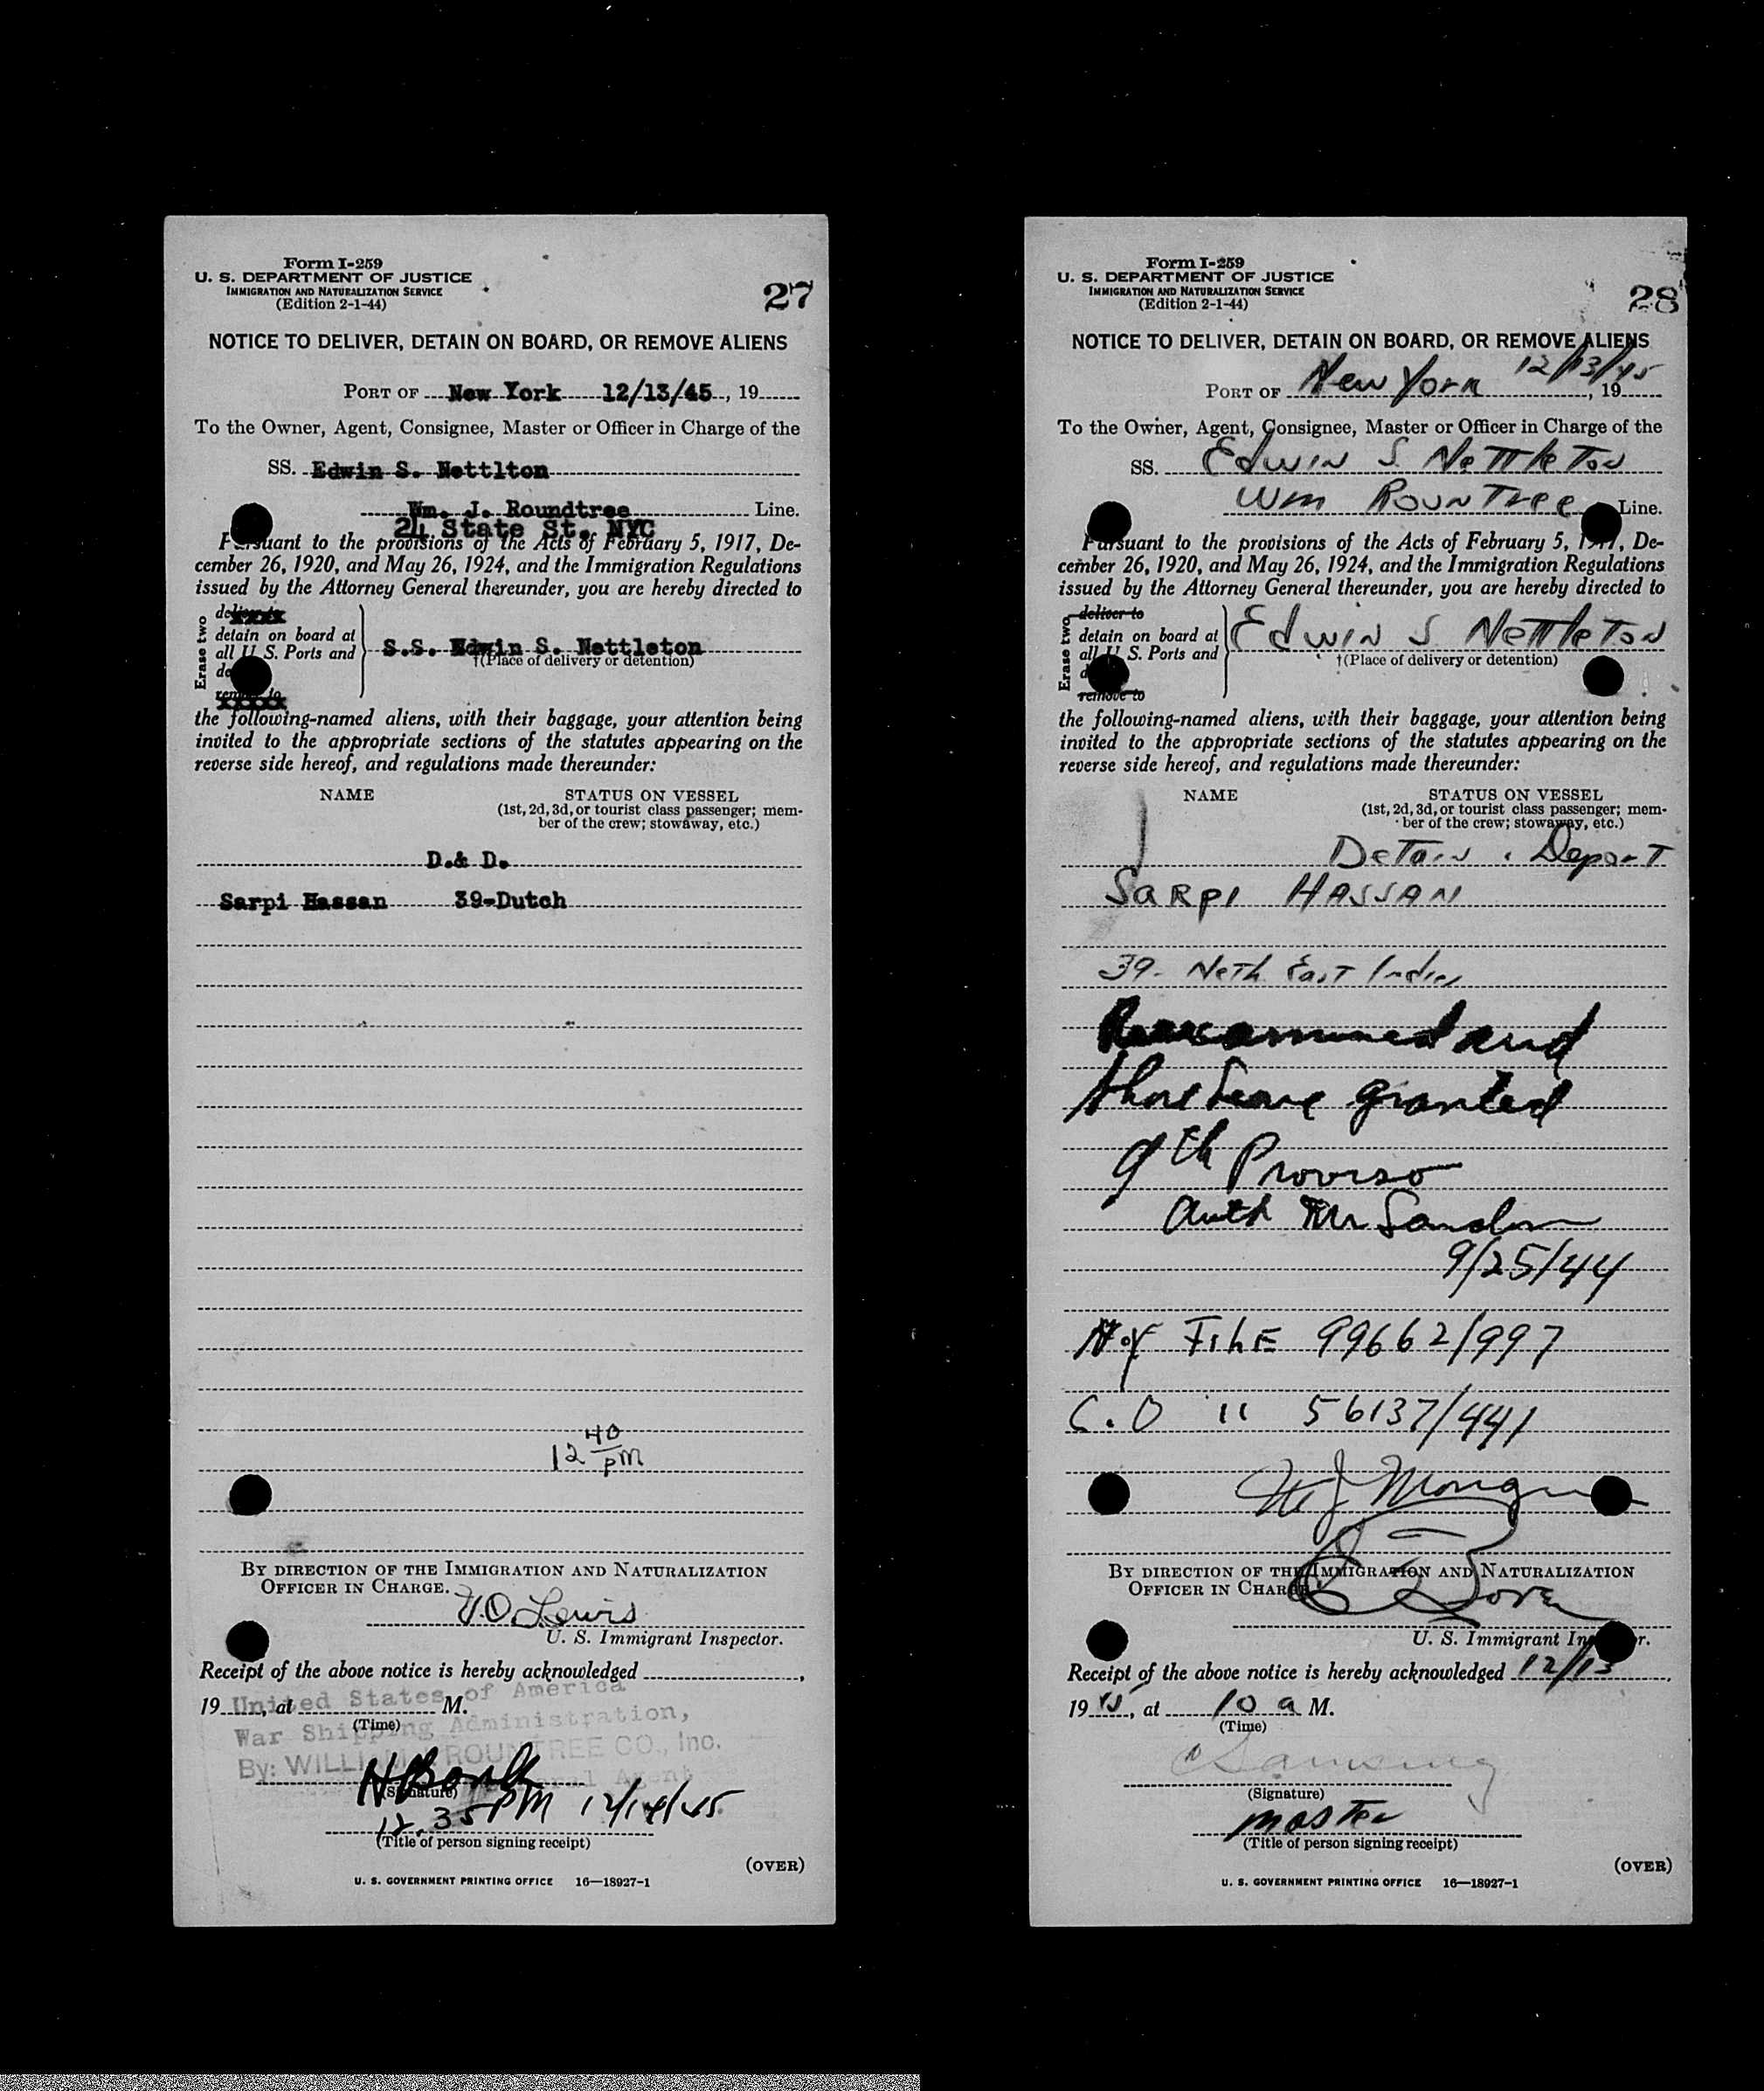 Form I-259
U. S. DEPARTMENT OF JUSTICE
IMMIGRATION AND NATURALIZATION SERVICE
(Edition 2-1-44)
27
NOTICE TO DELIVER, DETAIN ON BOARD, OR REMOVE ALIENS
PORT OF New York 12/13/45, 19
To the Owner, Agent, Consignee, Master or Officer in Charge of the
SS. Edwin S. Nettlton
Wm. J. Roundtree Line.
24 State St. NYC
Pursuant to the provisions of the Acts of February 5, 1917, De-
cember 26, 1920, and May 26, 1924, and the Immigration Regulations
issued by the Attorney General thereunder, you are hereby directed to
Erase two
deliver to
detain on board at
all U. S. Ports and
remove to
S.S. Edwin S. Nettleton
†(Place of delivery or detention)
the following-named aliens, with their baggage, your attention being
invited to the appropriate sections of the statutes appearing on the
reverse side hereof, and regulations made thereunder:
NAME STATUS ON VESSEL
(1st, 2d, 3d, or tourist class passenger; mem-
ber of the crew; stowaway, etc.)
D.& D.
Sarpi Hassan 39-Dutch
12 40
pm
BY DIRECTION OF THE IMMIGRATION AND NATURALIZATION
OFFICER IN CHARGE.
Lewis
U. S. Immigrant Inspector.
Receipt of the above notice is hereby acknowledged
19 , at M.
(Time)
United States of America
War Shipping Administration,
By: WILLIAM J. ROUNTREE CO., Inc.
(Signature)
12.35 PM 12/14/45
(Title of person signing receipt)
(OVER)
U. S. GOVERNMENT PRINTING OFFICE 16—18927-1
Form I-259
U. S. DEPARTMENT OF JUSTICE
IMMIGRATION AND NATURALIZATION SERVICE
(Edition 2-1-44)
28
NOTICE TO DELIVER, DETAIN ON BOARD, OR REMOVE ALIENS
PORT OF New York 12/13/45, 19
To the Owner, Agent, Consignee, Master or Officer in Charge of the
SS. Edwin S. Nettleton
Wm Rountree Line.
Pursuant to the provisions of the Acts of February 5, 1917, De-
cember 26, 1920, and May 26, 1924, and the Immigration Regulations
issued by the Attorney General thereunder, you are hereby directed to
Erase two
deliver to
detain on board at
all U. S. Ports and
remove to
Edwin S Nettleton
†(Place of delivery or detention)
the following-named aliens, with their baggage, your attention being
invited to the appropriate sections of the statutes appearing on the
reverse side hereof, and regulations made thereunder:
NAME STATUS ON VESSEL
(1st, 2d, 3d, or tourist class passenger; mem-
ber of the crew; stowaway, etc.)
Detain . Deport
Sarpi HASSAN
39- Neth East Indies
Reexamined and
Shore Leave granted
9th Proviso
auth Mr
9/25/44
N.Y FILE 99662/997
C.O " 56137/441
BY DIRECTION OF THE IMMIGRATION AND NATURALIZATION
OFFICER IN CHARGE.
U. S. Immigrant Inspector.
Receipt of the above notice is hereby acknowledged 12/13,
19 45, at 10 a M.
(Time)
(Signature)
master
(Title of person signing receipt)
(OVER)
U. S. GOVERNMENT PRINTING OFFICE 16—18927-1